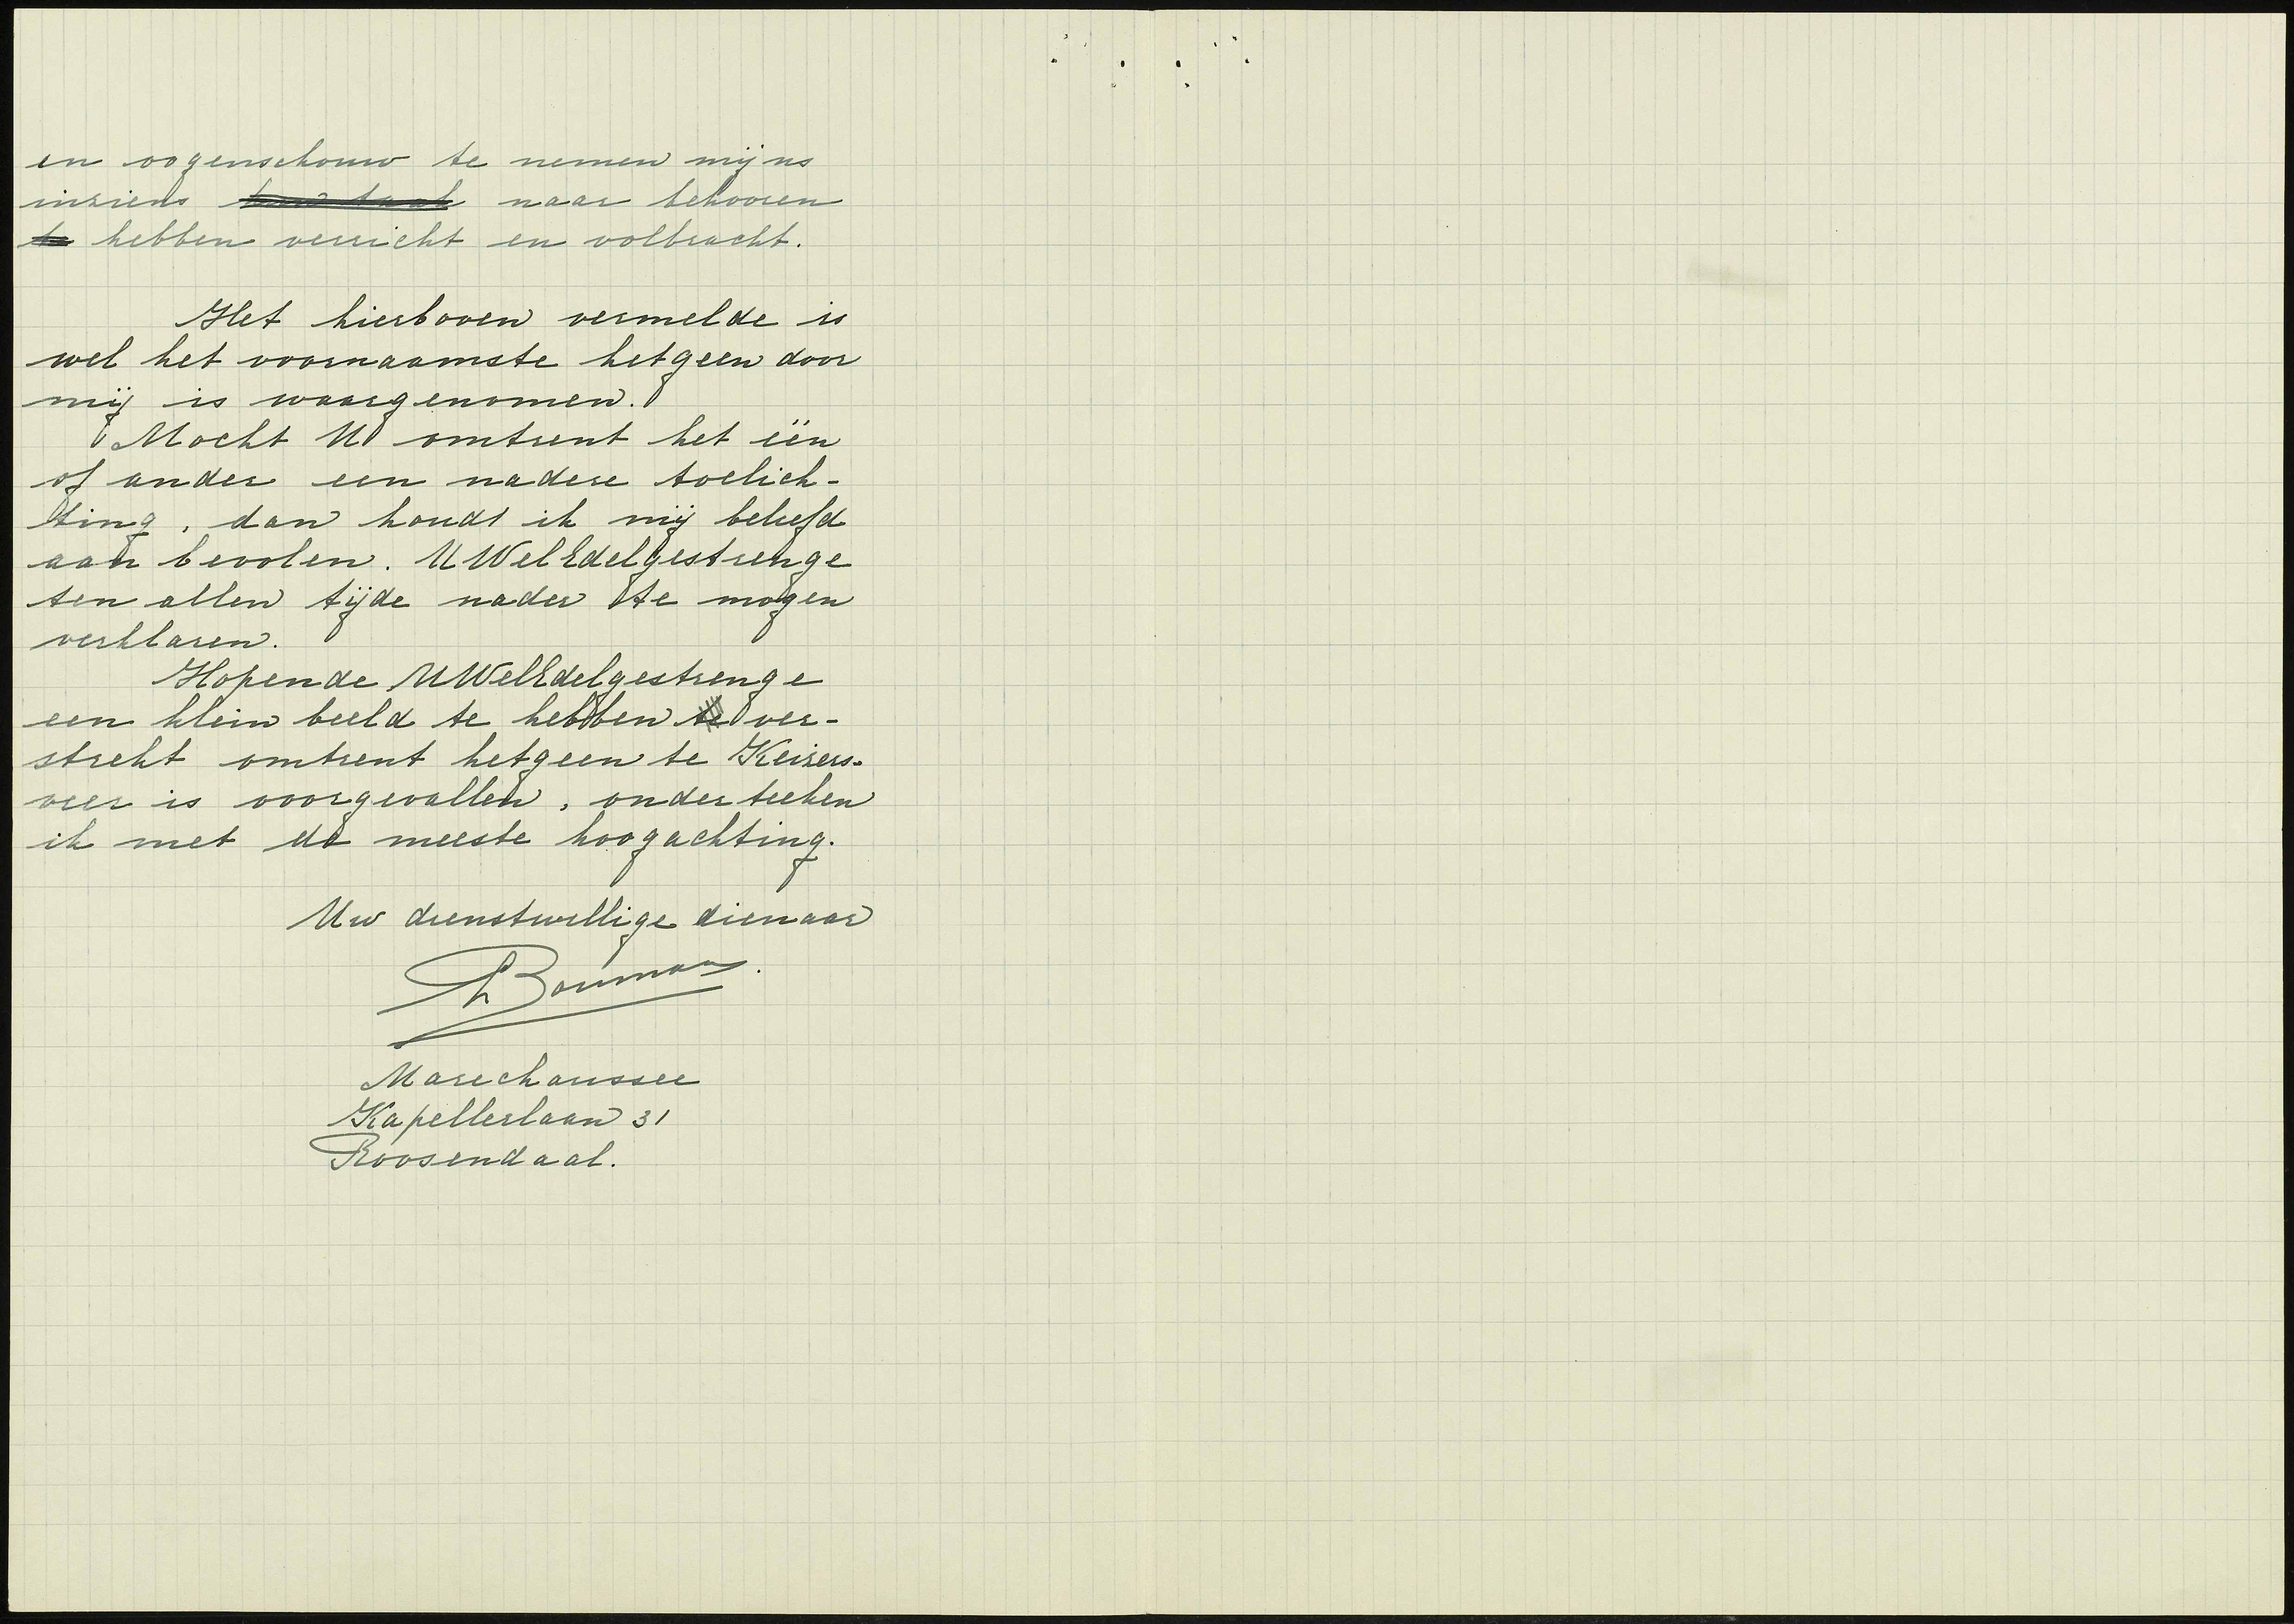 en oogenschouw te nemen mijns
inziens hun taak naar behooren
te hebben verricht en volbracht.
Het hierboven vermelde is
wel het voornaamste hetgeen door
mij is waargenomen.
Mocht U omtrent het één
of ander een nadere toelich-
ting, dan houdt ik mij beleefd
aan bevolen. UWelEdelgestrenge
ten allen tijde nader te mogen
verklaren.
Hopende UWelEdelgestrenge
een klein beeld te hebben te ver-
strekt omtrent hetgeen te Keizers-
veer is voorgevallen, onderteeken
ik met de meeste hoogachting.
Uw dienstwillige dienaar
Bouman.
Marechaussee
Kapellerlaan 31
Roosendaal.